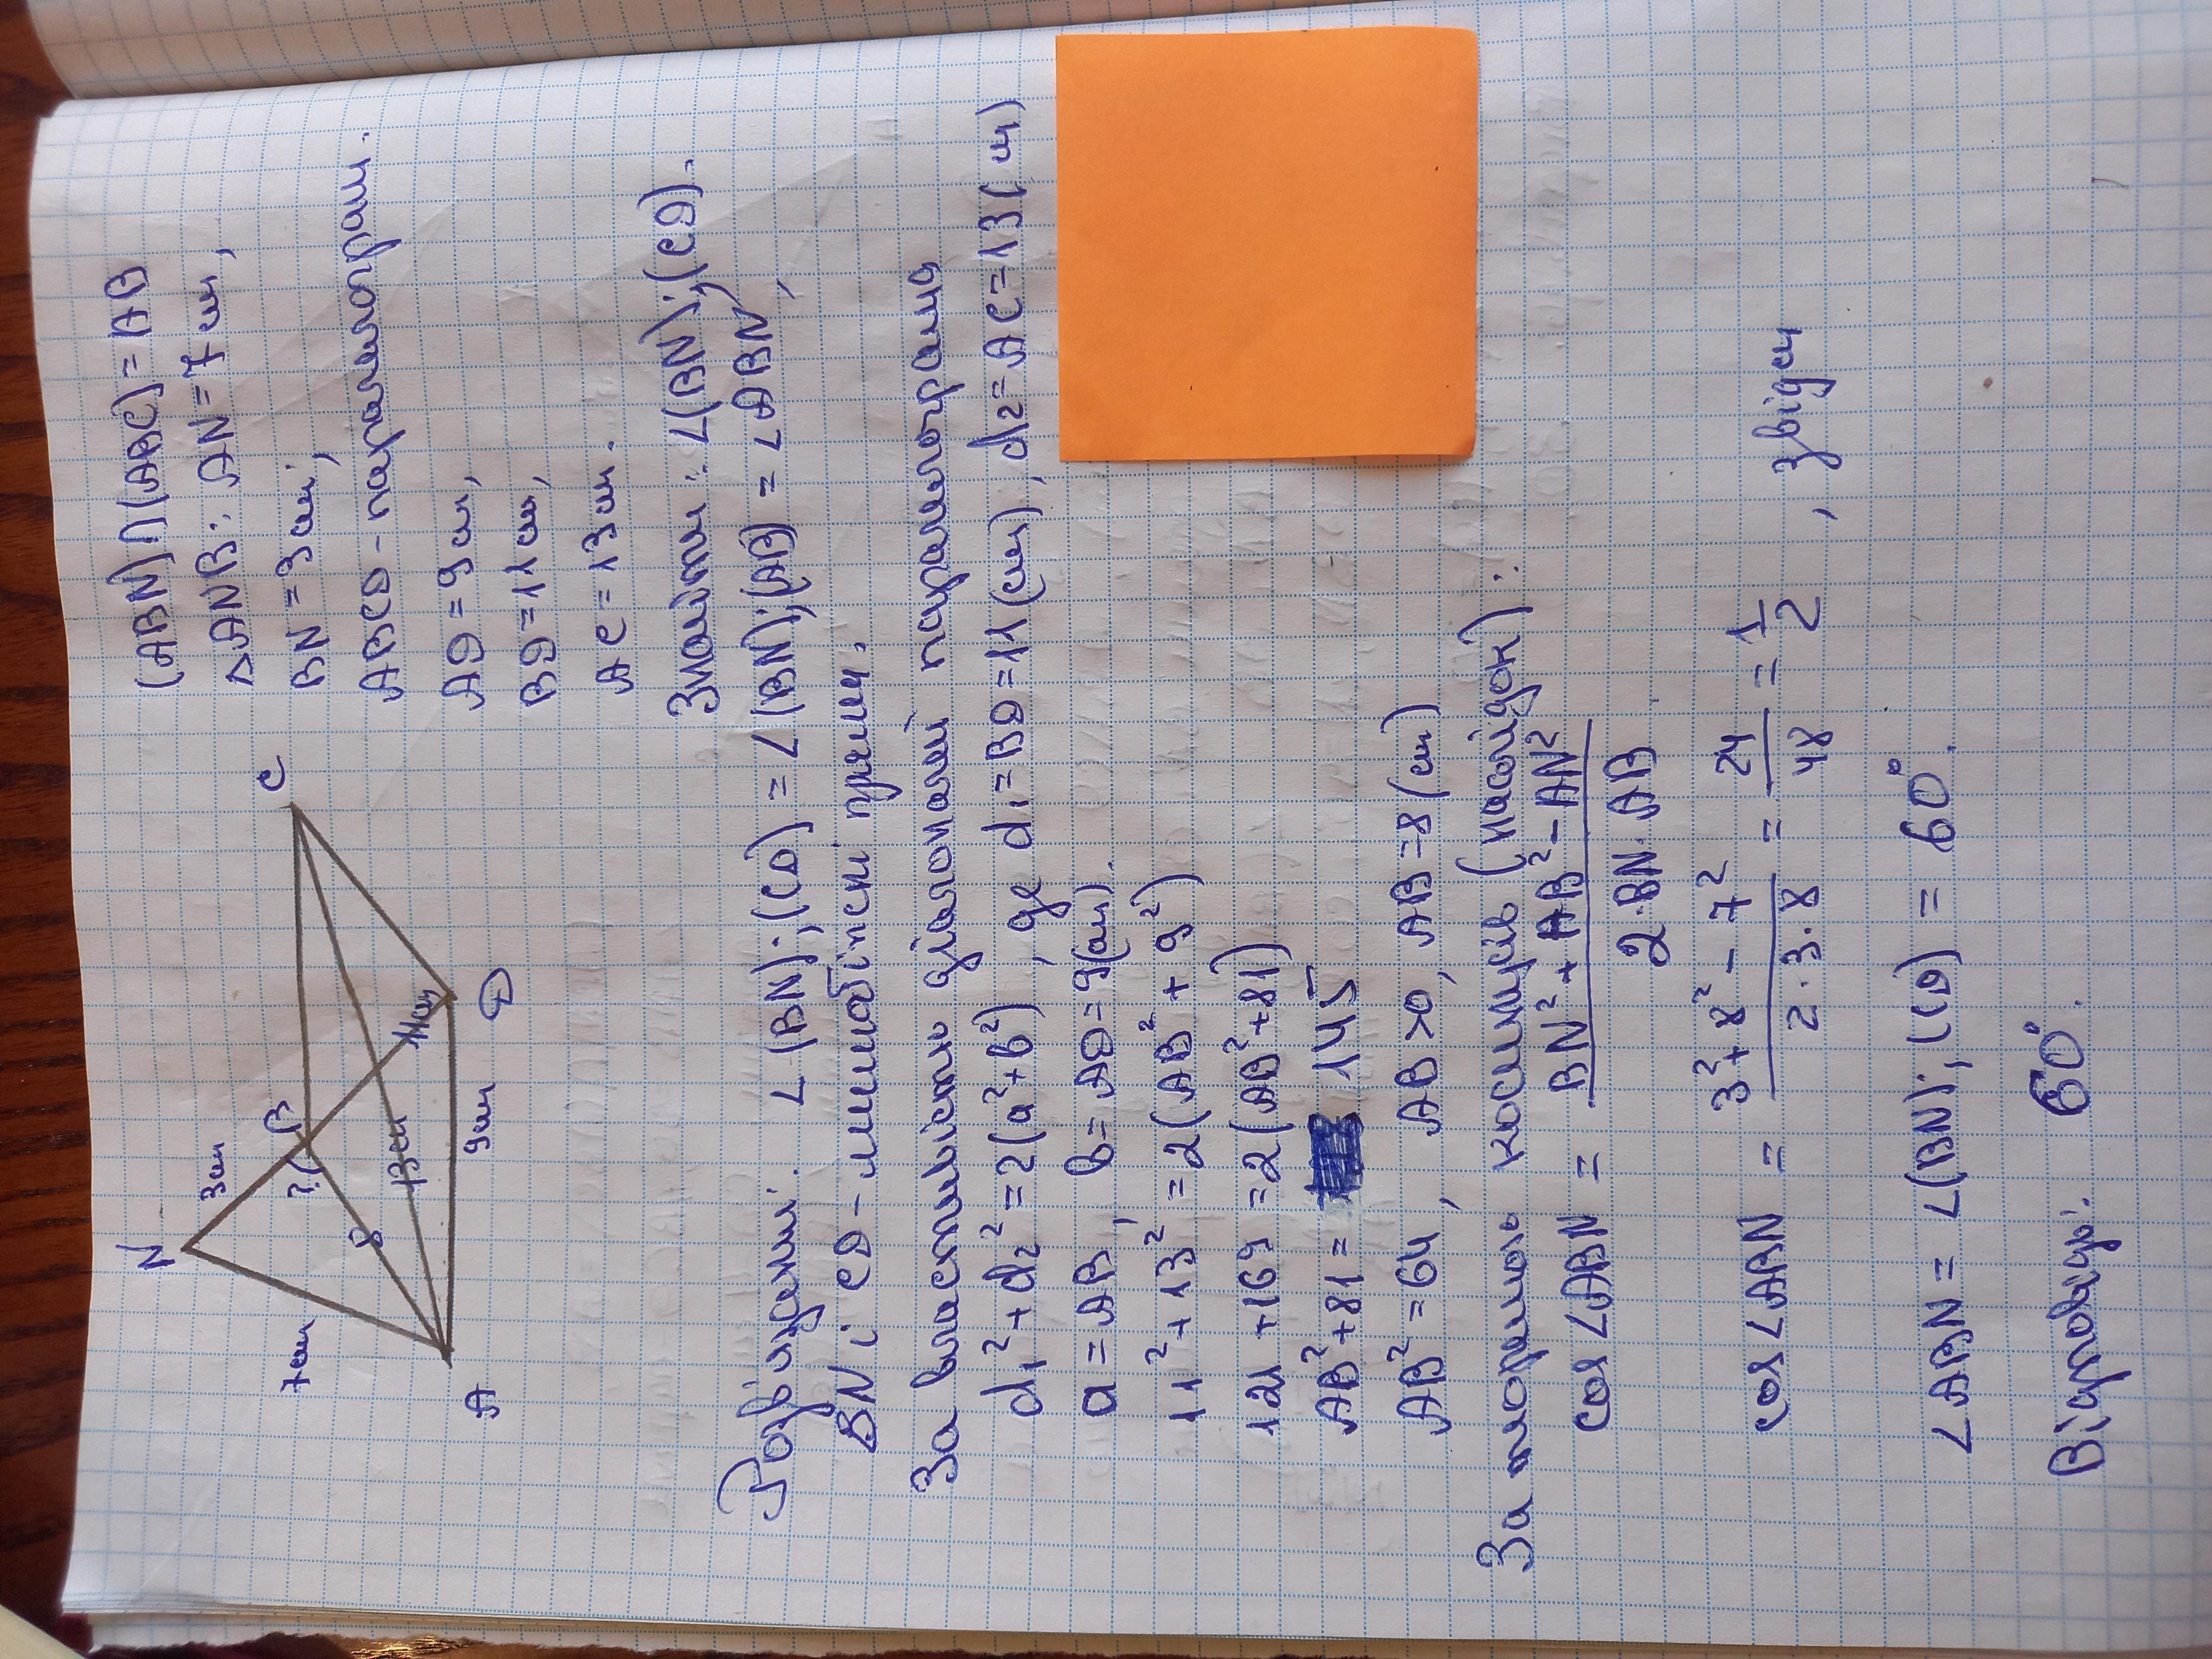 (ABN)∩(ABC)=AB
△ANB: AN=7 см,
BN=3см;
ABCD - паралелограм.
AD=9 см,
BD=11 см,
AC=13 см.
Знайти: ∠(BN);(CD).
N
3 см
B
C
7 см
?
8
13см
11см
A
9см
D
Розв'язання: ∠(BN);(CD)=∠(BN);(AB)=∠ABN,
BN і CD - мимобіжні прямі.
За властивістю діагоналей паралелограма
d₁²+d₂²=2(a²+b²), де d₁=BD=11(см), d₂=AC=13(см)
a=AB, b=AD=9(см).
11²+13²=2(AB²+9²)
121+169=2(AB²+81)
AB²+81= 145
AB²=64, AB>0, AB=8(см)
За теоремою косинусів (наслідок):
cos∠ABN = (BN²+AB²-AN²)/(2·BN·AB)
cos∠ABN = (3²+8²-7²)/(2·3·8) = 24/48 = 1/2, звідси
∠ABN=∠(BN);(CD)=60°.
Відповідь: 60°.